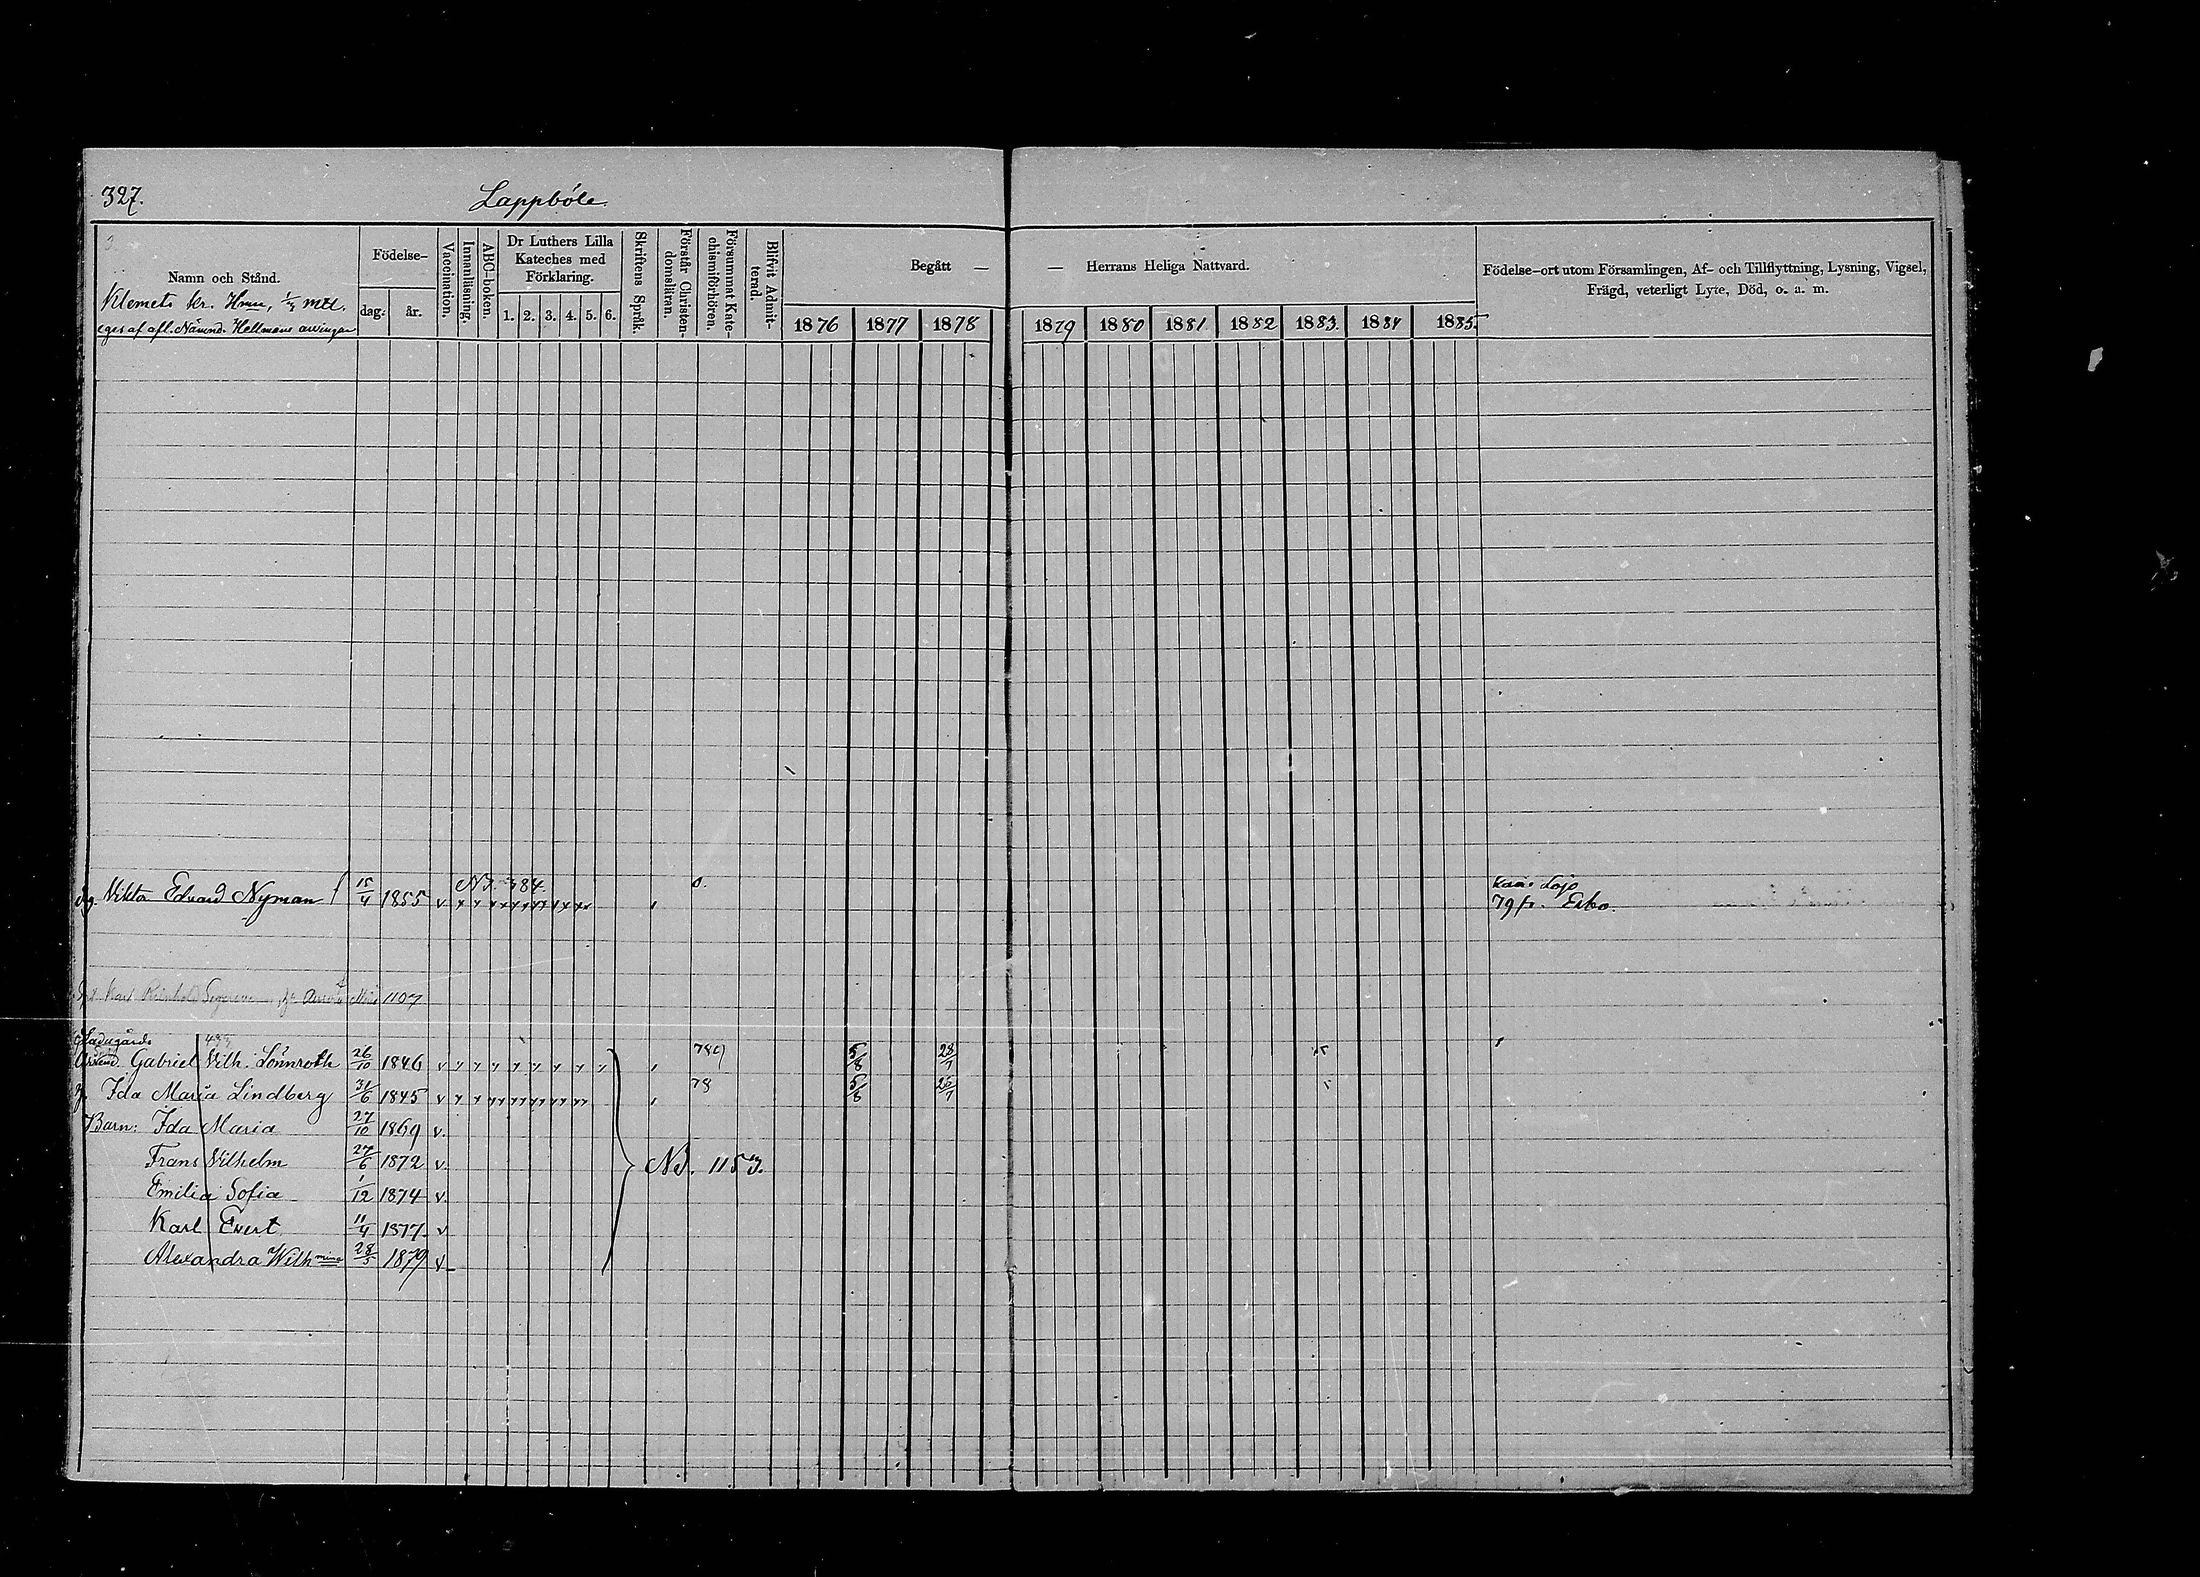 327.
Lappböle
Namn och Stånd.
Klemets kr. Hmn, 1/4 mtl.
eges af afl. Nämnd. Hellmans arvingar
Födelse-
dag.
år.
Vaccination.
Innanläsning.
ABC-boken.
Dr Luthers Lilla
Kateches med
Förklaring.
1. 2. 3. 4. 5. 6.
Skriftens Språk.
Förstår Christen-
domsläran.
Försummat Kate-
chismiförhören.
Blifvit Admit-
terad.
Begått —
— Herrans Heliga Nattvard.
1876 1877 1878 1879 1880 1881 1882 1883. 1884 1885.
Födelse-ort utom Församlingen, Af- och Tillflyttning, Lysning, Vigsel,
Frägd, veterligt Lyte, Död, o. a. m.
N3. 384. 0. Lojo
dg. Viktor Edvard Nyman 15/4 1855 v 79 fr. Esbo.
Karl 1107
Ladugårds
Gabriel Vilh. Lönnroth 26/10 1846 v 5/8 28/7
h. Ida Maria Lindberg 31/6 1845 v 78 5/8 26/7
Barn: Ida Maria 27/10 1869 v.
Frans Vilhelm 27/6 1872 v. N3. 1153.
Emilia Sofia 1/12 1874 v.
Karl Evert 11/4 1877. v
Alexandra Wilhmina 28/5 1879 v